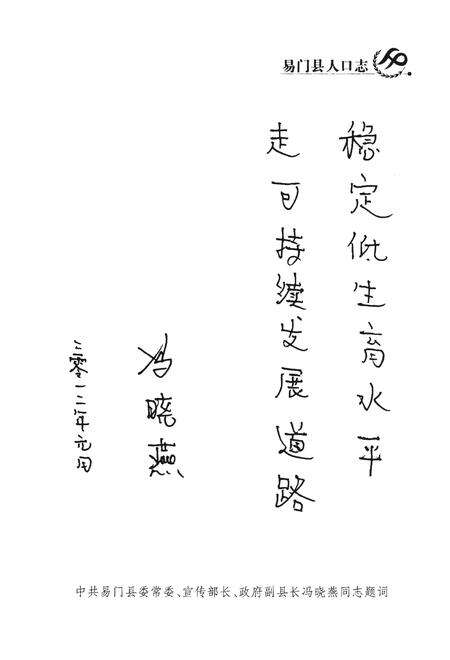 易门县人口志
稳定低生育水平
走可持续发展道路
冯晓燕
二零一二年元月
中共易门县委常委、宣传部长、政府副县长冯晓燕同志题词